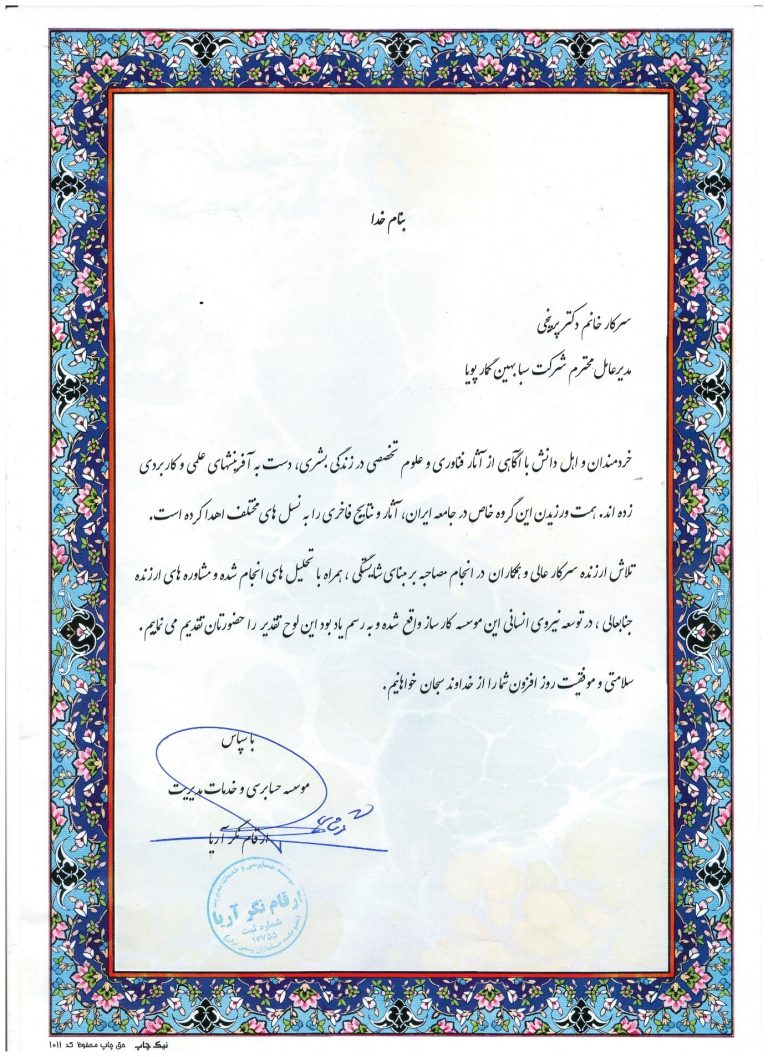 بنام خدا
سرکار خانم دکتر پریخی
مدیرعامل محترم شرکت سبا بهین نگار پویا
خردمندان و اهل دانش با آگاهی از آثار فناوری و علوم تخصصی در زندگی بشری، دست به آفرینشهای علمی و کاربردی
زده اند. همت ورزیدن این گروه خاص در جامعه ایران، آثار و نتایج فاخری را به نسل های مختلف اهدا کرده است.
تلاش ارزنده سرکار عالی و همکاران در انجام مصاحبه بر مبنای شایستگی ، همراه با تحلیل های انجام شده و مشاوره های ارزنده
جنابعالی ، در توسعه نیروی انسانی این موسسه کارساز واقع شده و به رسم یادبود این لوح تقدیر را حضورتان تقدیم می نماییم .
سلامتی و موفقیت روز افزون شما را از خداوند سبحان خواهانیم .
با سپاس
موسسه حسابرسی و خدمات مدیریت
ارقام نگر آریا
موسسه حسابرسی و خدمات مدیریت
ارقام نگر آریا
شماره ثبت
۱۷۷۵۵
نیک چاپ حق چاپ محفوظ کد ۱۰۱۱